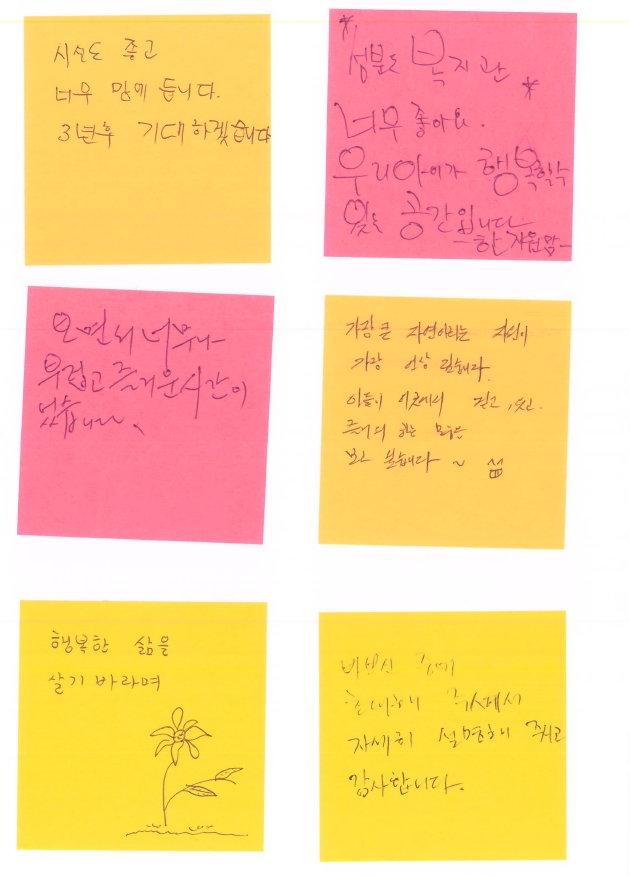 시설도 좋고
너무 맘에 듭니다.
3년후 기대하겠습니다
성분도 복지관
너무 좋아요.
우리아이가 행복할수
있는 공간입니다
한 자원맘
오면서 너무나
무겁고 즐거운시간이
었습니다.
가장 큰 자연이라는
가장 인상 깊습니다.
이들이 이곳에서 걷고, 웃고.
하는 모습을
보고 싶습니다 ~
행복한 삶을
살기 바라며
바쁘신 중에
초대해 주셔서
자세히 설명해 주시고
감사합니다.